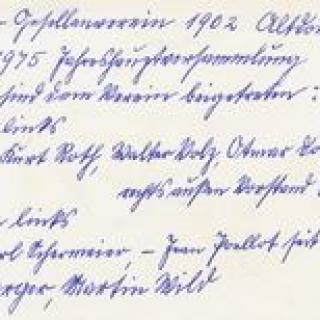 - Gesellenverein 1902 Altdor
1975 Jahreshauptversammlung
sind dem Verein beigetreten:
links
Kurt Roth, Walter Volz, Otmar
rechts außen Vorstand
links
Schermeier, - Jean Poellot seit
Martin Wild